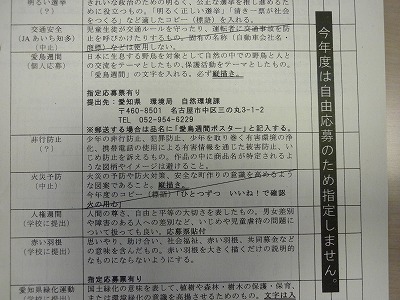 明るい選挙
(?)
きれいな政治のための明るく、公正な選挙を推し進めるために役立つもの。「明るく正しい選挙」「清き一票が社会をつくる」など適したコピー（標語）を入れる。
交通安全
(JAあいち知多)
(中止)
児童生徒が交通ルールを守ったり、運転者に交通事故防止を呼びかけたりするもの。固有の名称（自動車会社名・商標）などは使用しない。
愛鳥週間
(個人応募)
日本に生息する野鳥を対象として自然の中での野鳥と人との交流をテーマとしたもの、保護活動をテーマとしたもの。「愛鳥週間」の文字を入れる。必ず縦描き。
指定応募票有り
提出先:愛知県 環境局 自然環境課
〒460-8501 名古屋市中区三の丸3-1-2
TEL 052-954-6229
※郵送する場合は品名に「愛鳥週間ポスター」と記入する。
非行防止
(?)
少年の非行防止、犯罪防止、少年を取り巻く有害環境の浄化、携帯電話の使用による有害情報を通じた被害防止、いじめ防止を訴えるもの。作品の中に商品名が特定されるような図柄やイメージは避けること。
火災予防
(中止)
火災の予防や防火対策、安全な町作りの意識を高めるような図案であること。縦描き。
今年度のコピー(標語)「ひとつずつ いいね!で確認 火の用心」
人権週間
(学校に提出)
人間の尊さ、自由と平等の大切さを表したもの。男女差別や障害のある人への差別など、いじめや児童虐待の問題について扱っても良い。応募票貼付
赤い羽根
(学校に提出)
思いやり、助け合い、社会福祉、赤い羽根、共同募金などの意味を含んだもの。赤い羽根を大きく描くだけの説明的なものにならないようにする。
愛知県緑化運動
(学校に提出)
指定応募票有り
国土緑化の意義を表して、植樹や森林・樹木の保護・保育、
今年度は自由応募のため指定しません。